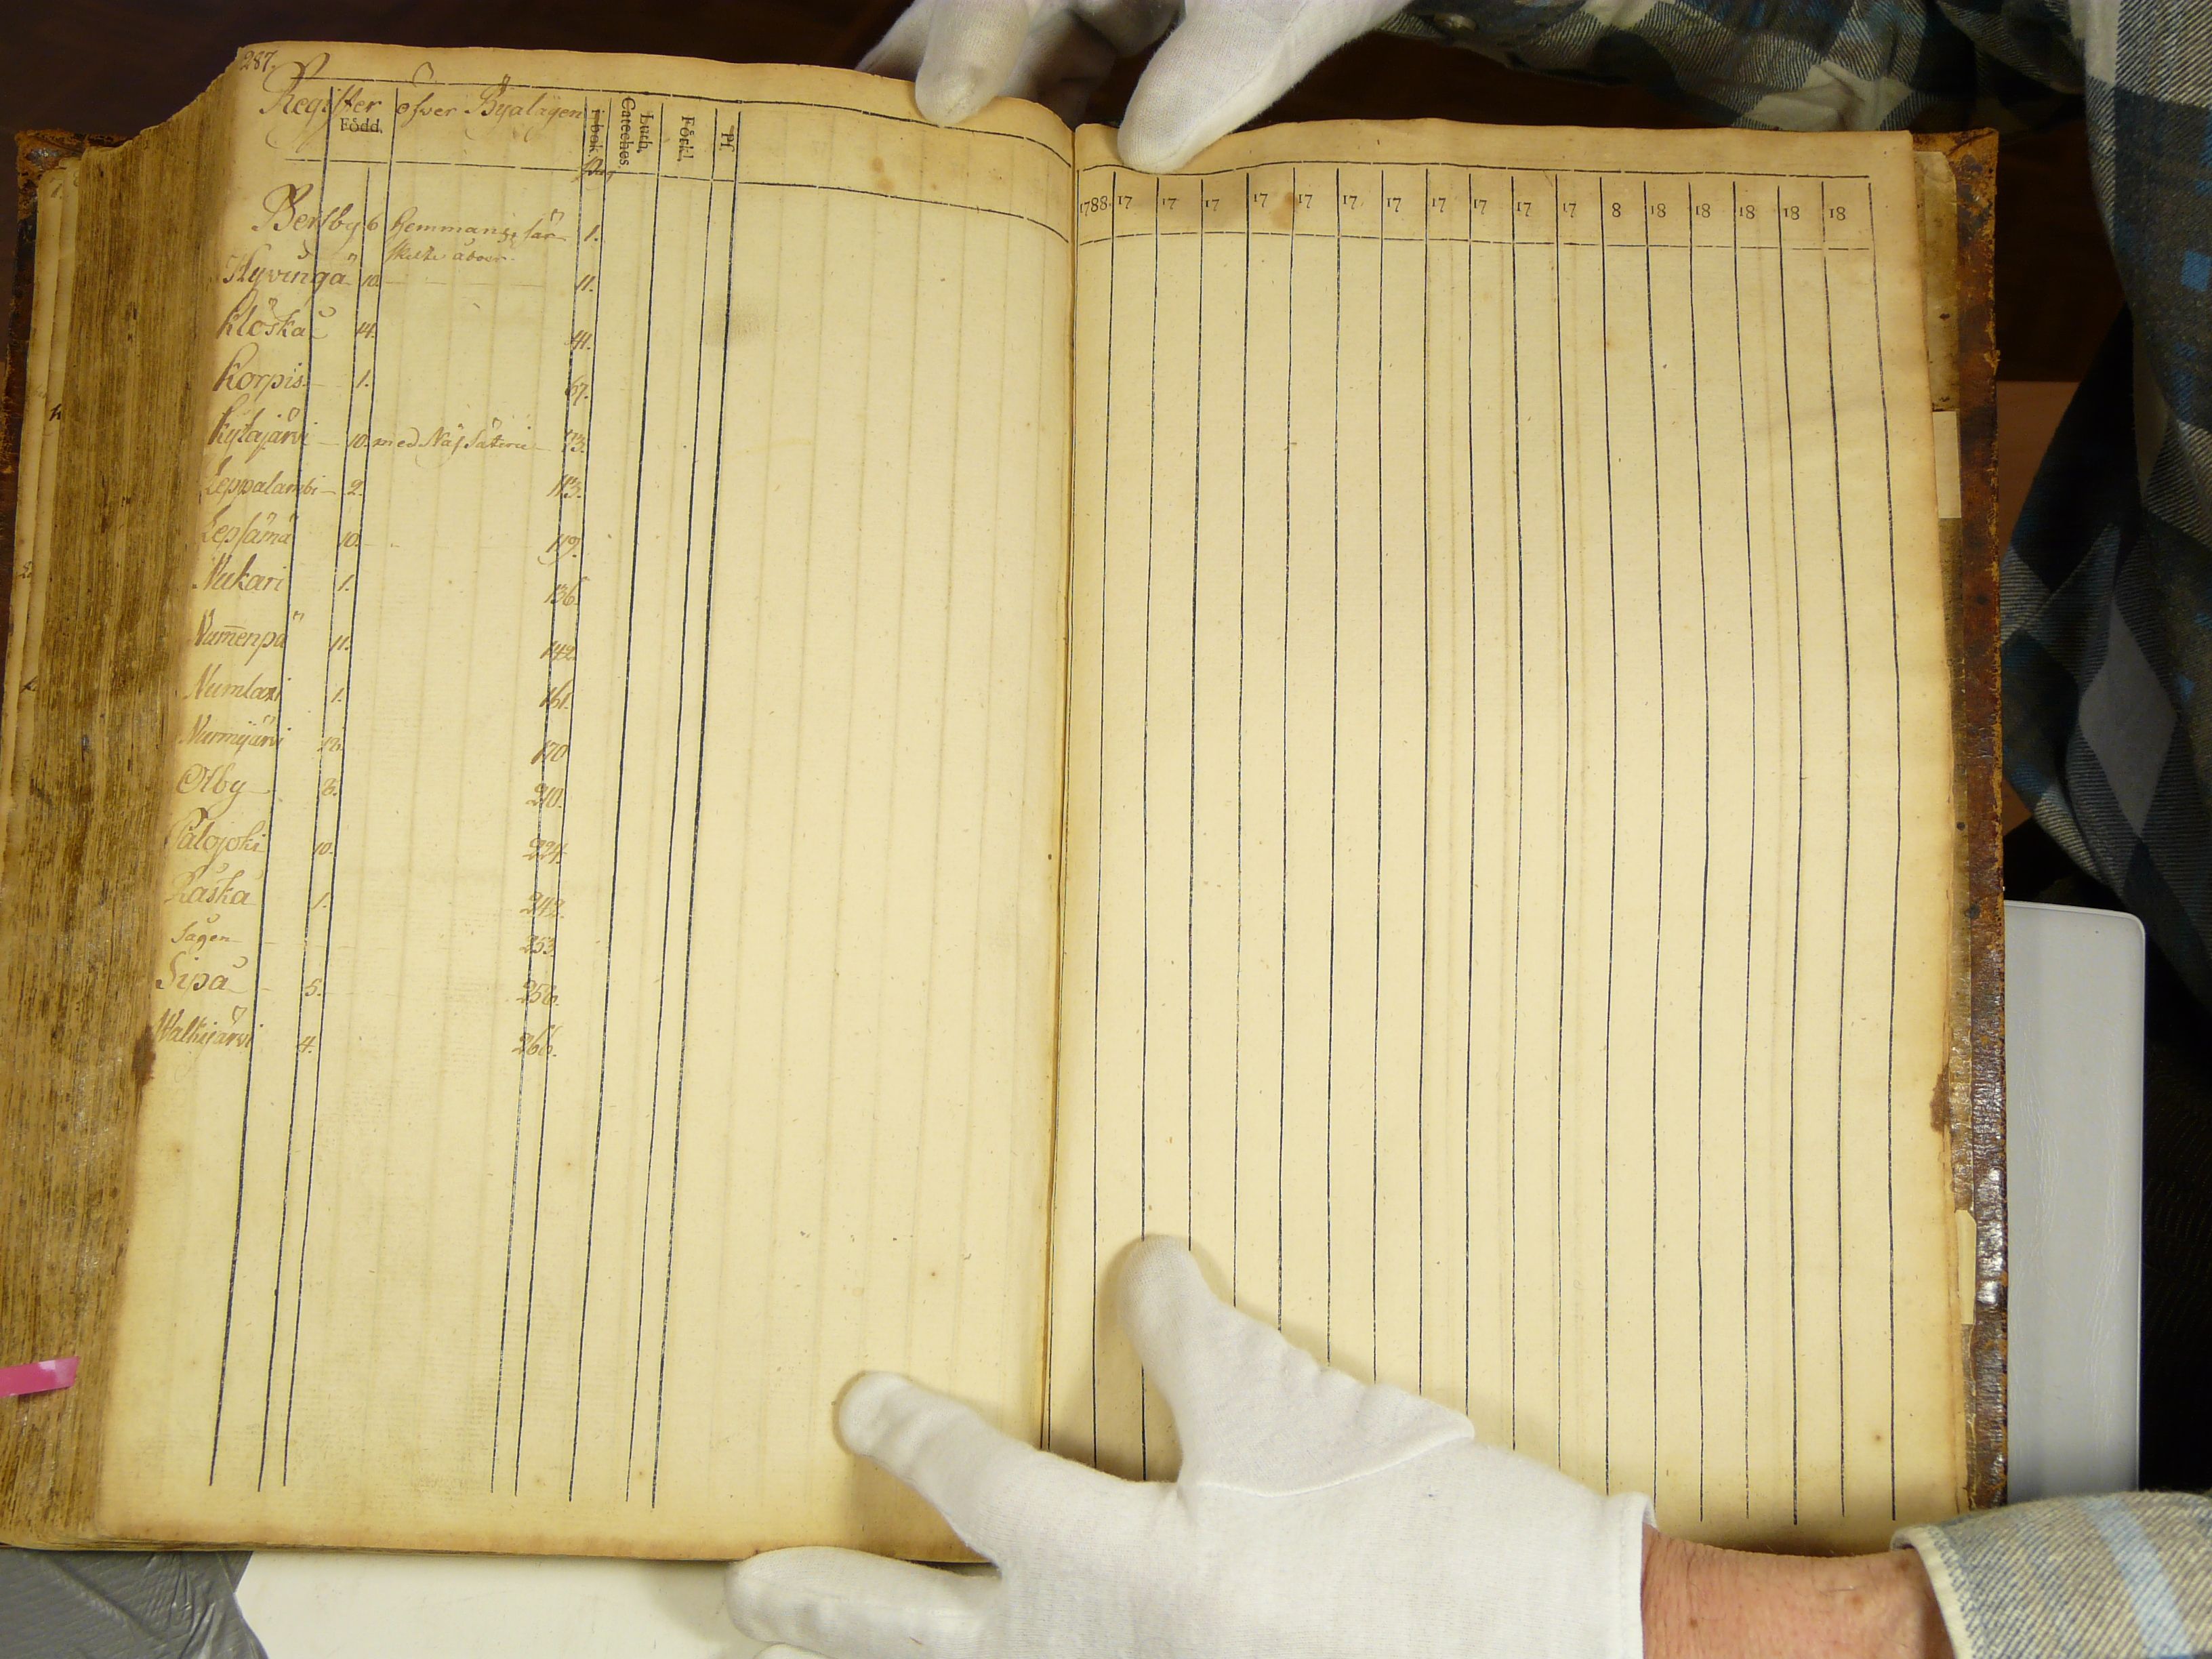 287.
Register öfver Byalagen
Född.
i bok
Luth. Catéches.
Förkl.
Pf.
Pag
Bertby 6 Hemman,
åboer. 1.
Hyvingä 10. 11.
Klöskå 14. 41.
Korpis 1. 67.
Kytäjärvi 10. med Näs Säterie 73.
Leppälambi 2. 113.
Lepsämä 10. 119.
Nukari 1. 136.
Num̄enpä 11. 142.
Numlaxi 1. 161.
Nurmijärvi 170
Olby 8. 210.
Palojoki 10. 224.
Raskå 1. 242.
Sågen 253.
Sipå 5. 256.
Walkijärvi 4. 266.
1788. 17 17 17 17 17 17 17 17 17 17 17 8 18 18 18 18 18